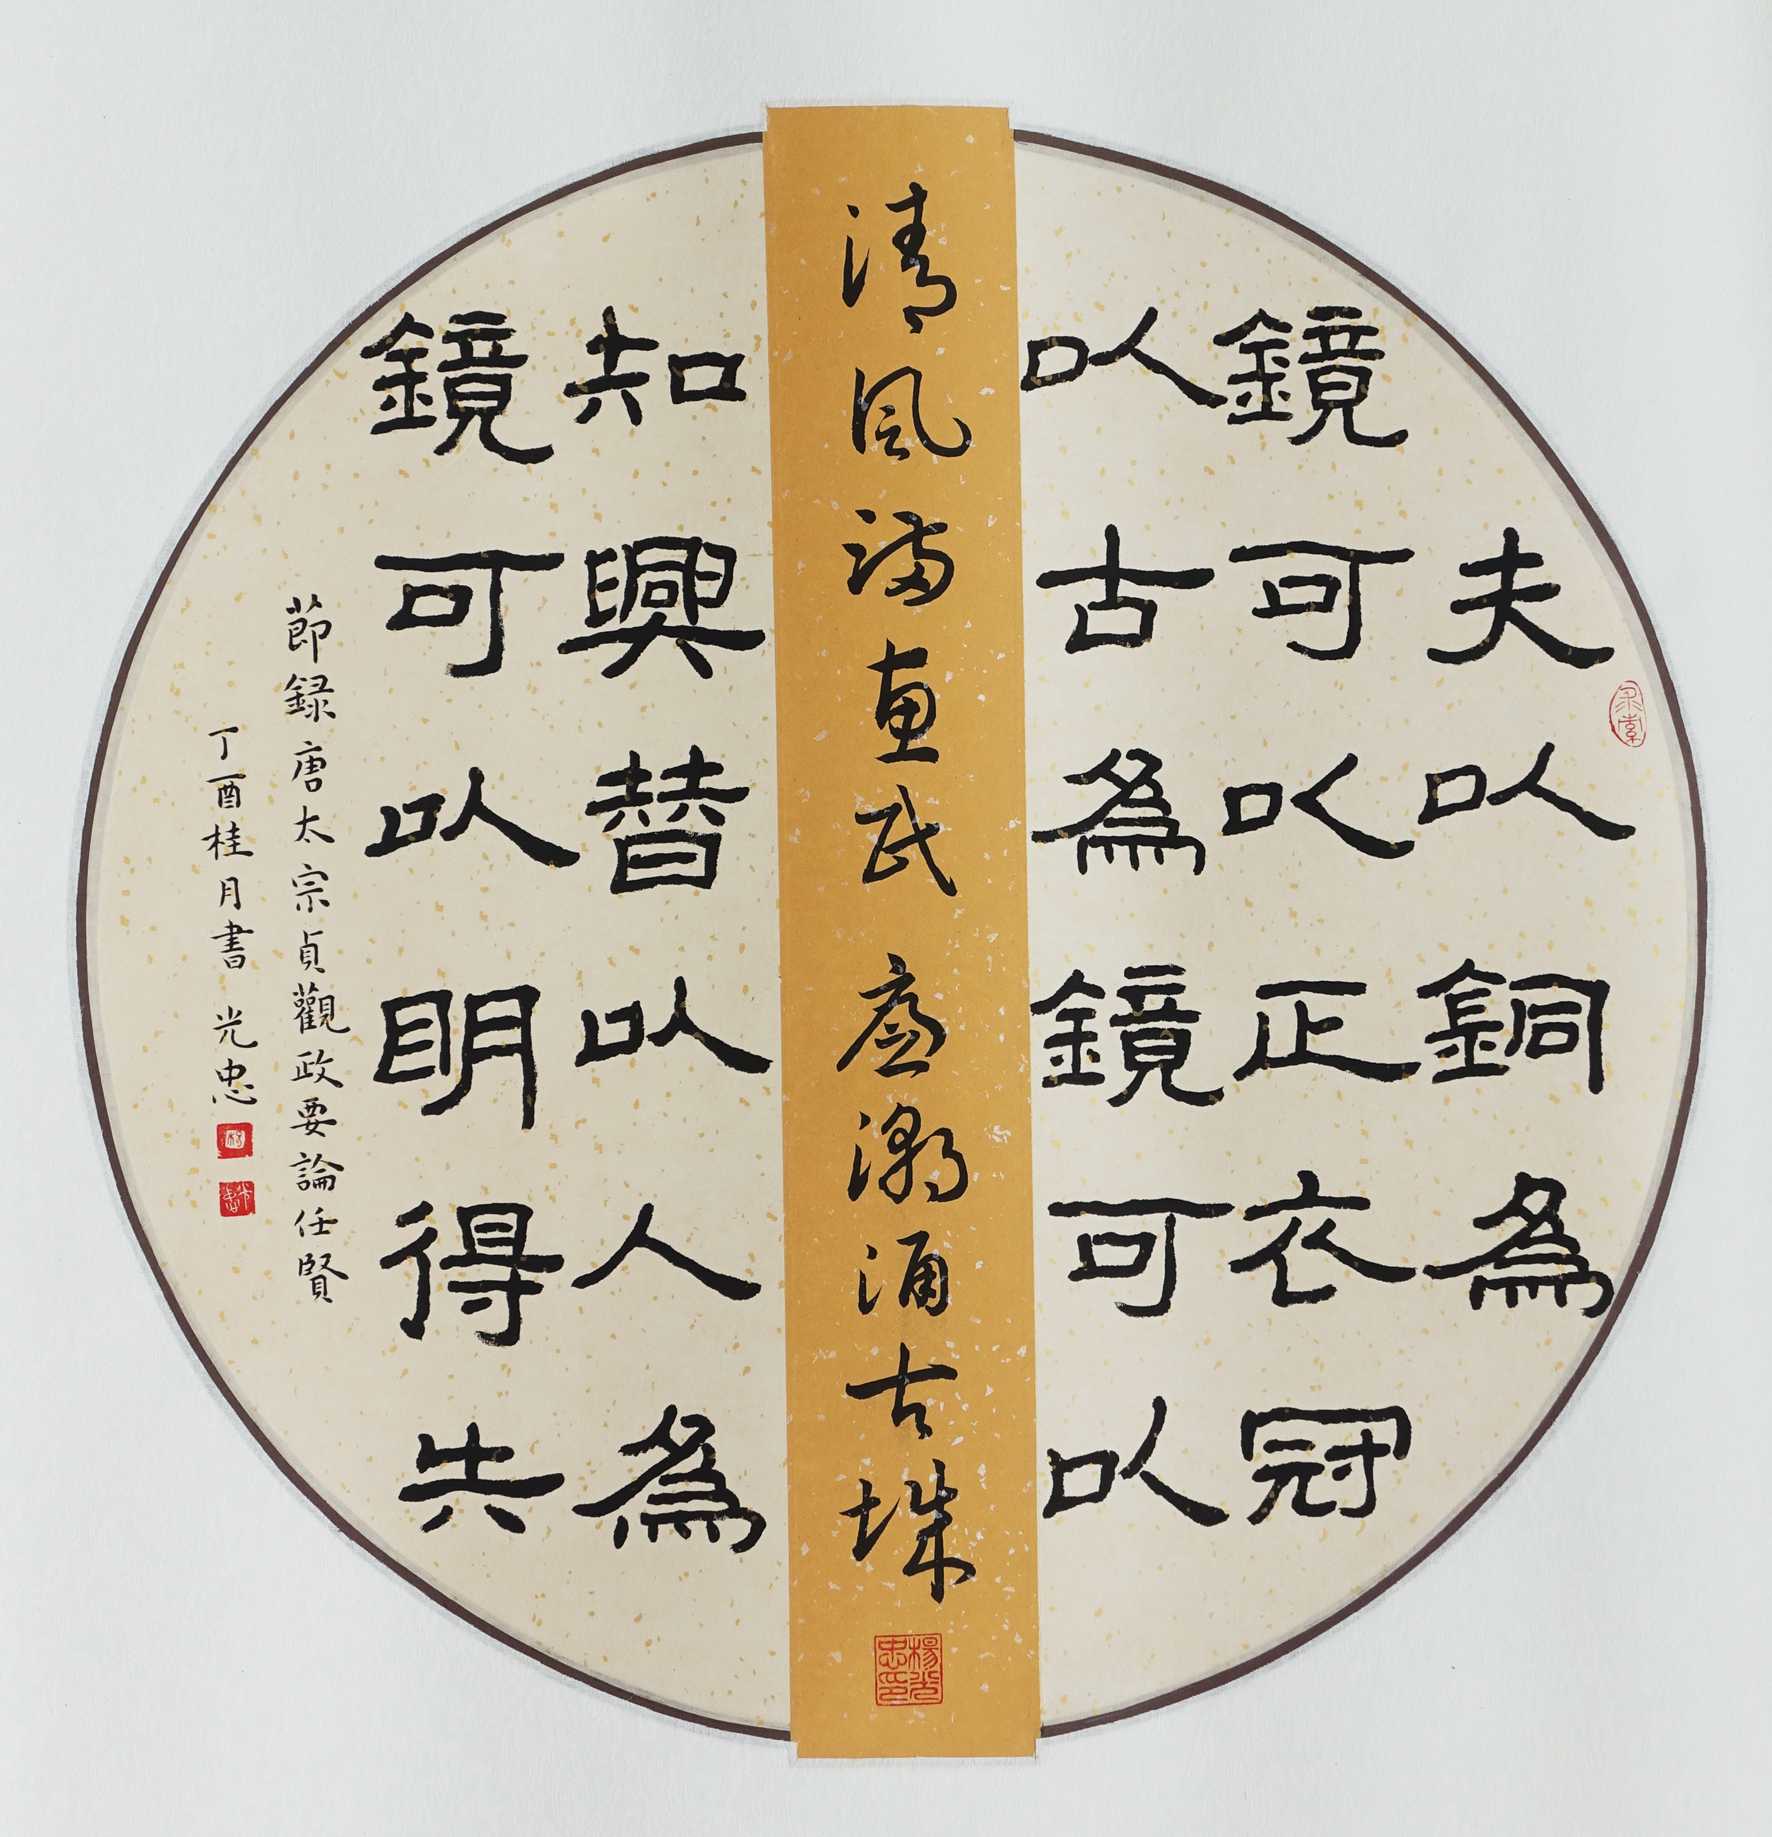 夫以銅為
鏡可以正衣冠
以古為鏡可以
清風满惠民 廉潮涌古城
楊光忠印
知興替以人為
鏡可以明得失
節録唐太宗貞觀政要論任賢
丁酉桂月書 光忠